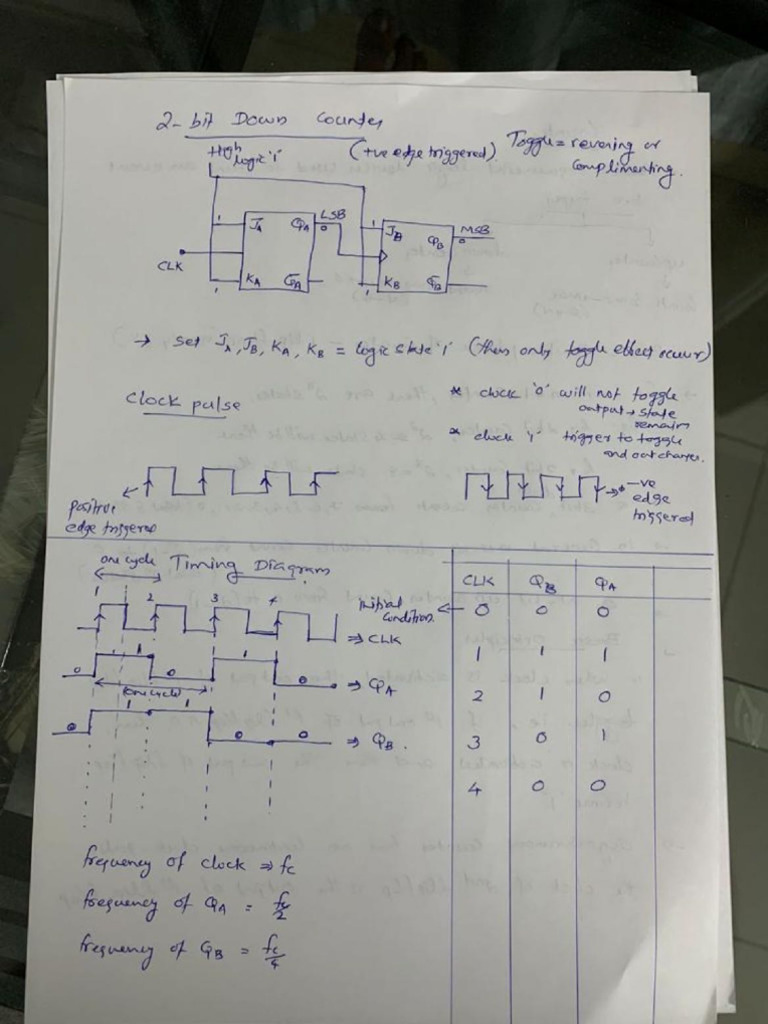 2-bit Down Counter
High logic '1'
(+ve edge triggered)
Toggle = revering or
complimenting.
JA QA LSB
0
JB QB MSB
0
1
1
CLK
KA Q̅A
KB Q̅B
1
1
→ Set JA, JB, KA, KB = logic state '1' (then only toggle effect occur)
Clock pulse
* clock '0' will not toggle
output → state
remains
* clock '1' trigger to toggle
and out changes.
positive
edge triggered
-ve
edge
triggered
one cycle Timing Diagram
1 2 3 4
⇒ CLK
0 1 1 0 1 0 ⇒ QA
(one cycle)
0 1 1 0 0 ⇒ QB.
CLK QB QA
initial condition ← 0 0 0
1 1 1
2 1 0
3 0 1
4 0 0
frequency of clock ⇒ fc
frequency of QA = fc/2
frequency of QB = fc/4